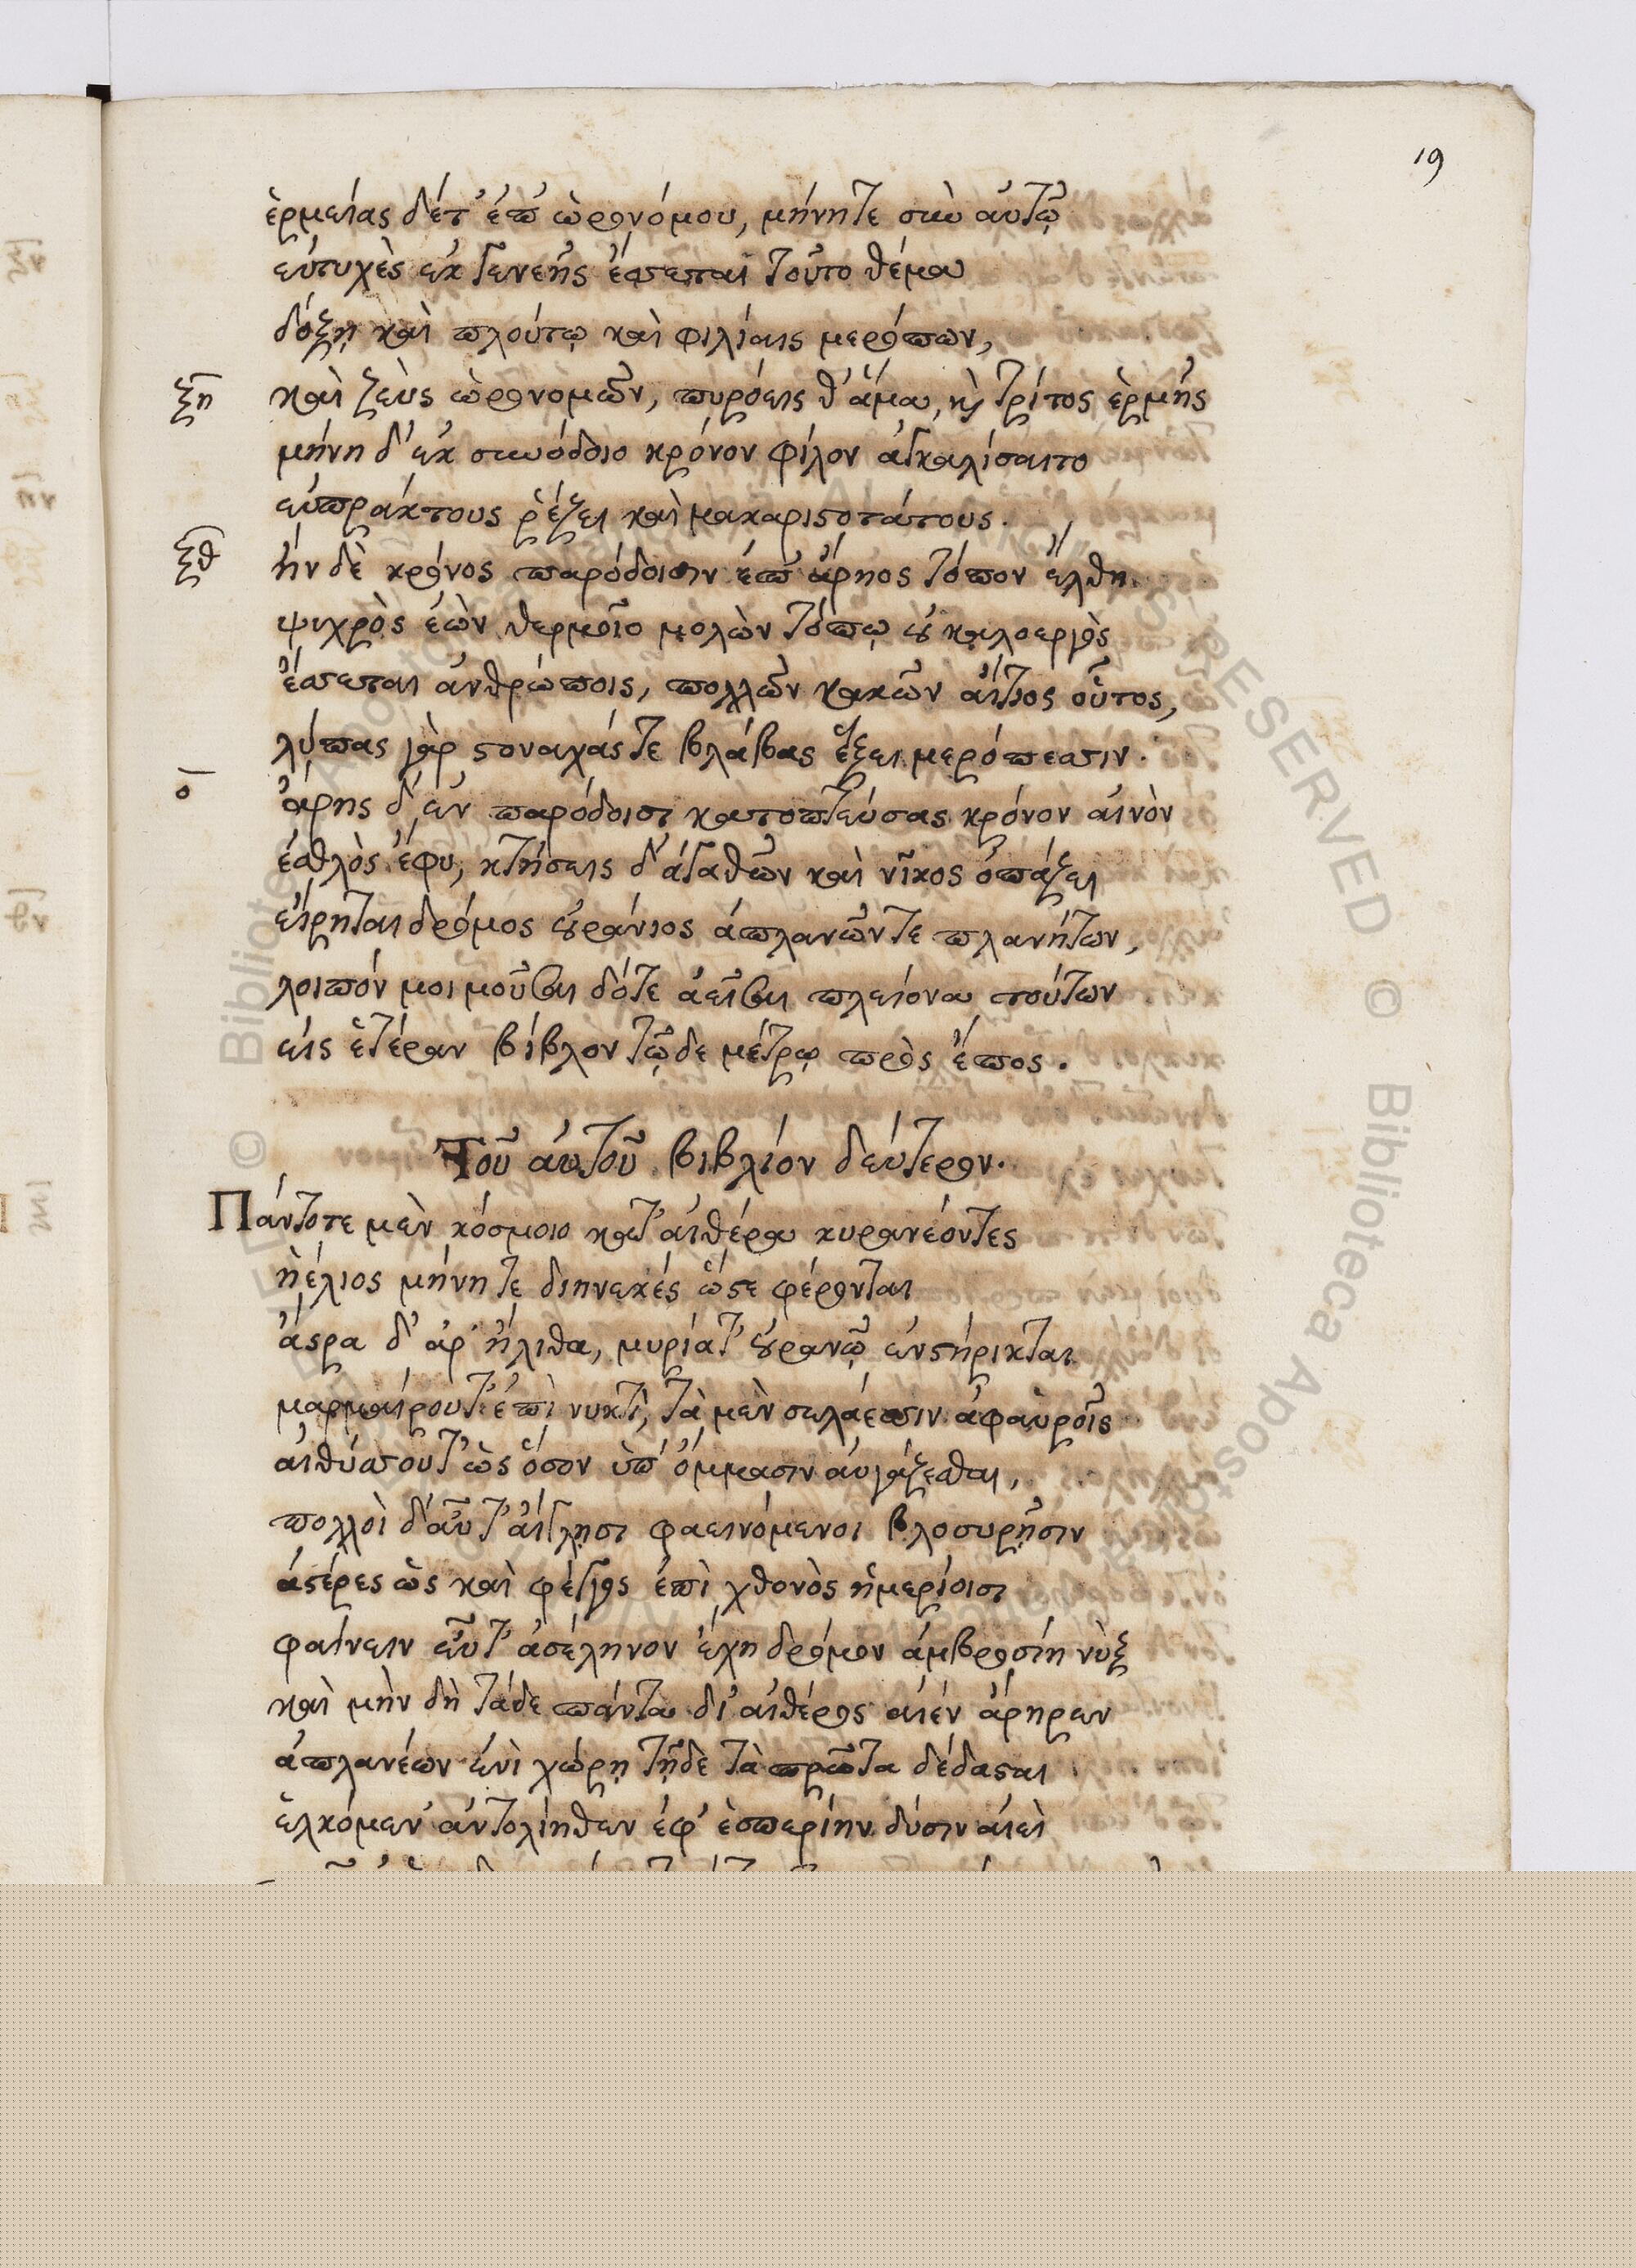 19
ἑρμείας δέτ' ἐπ' ὡρονόμου, μήνητε σὺν αὐτῷ
εὐτυχὲς ἐκ γενεῆς ἔσσεται τοῦτο θέμα
δόξῃ καὶ πλούτῳ καὶ φιλίαις μερόπων,
ξη καὶ ζεὺς ὡρονομῶν, πυρόεις θ' ἅμα, κỳ τρίτος ἑρμῆς
μήνη δ' ἐκ συνόδοιο κρόνον φίλον ἀγκαλίσαιτο
εὐπράκτους ῥέζει καὶ μακαριστοτάτους.
ξθ ἢν δὲ κρόνος παρόδοισιν ἐπ' ἄρηος τόπον ἔλθη.
ψυχρὸς ἐὼν θερμοῖο μολὼν τόπῳ οὐ καλοεργὸς
ἔσσεται ἀνθρώποις, πολλῶν κακῶν αἴτιος οὗτος,
λύπας γὰρ στοναχάς τε βλάβας ἕξει μερόπεσσιν.
ο ἄρης δ' ἐν παρόδοισι κατοπτεύσας κρόνον αἰνὸν
ἐσθλὸς ἔφυ, κτήσεις δ' ἀγαθῶν καὶ νῖκος ὀπάζει
εἴρηται δρόμος οὐράνιος ἀπλανῶν τε πλανήτων,
λοιπόν μοι μοῦσαι δότε ἀεῖσαι πλείονα τούτων
εἰς ἑτέραν βίβλον τῷδε μέτρῳ πρὸς ἔπος.
Τοῦ αὐτοῦ βιβλίον δεύτερον.
Πάντοτε μὲν κόσμοιο κατ' αἰθέρα κυρανέοντες
ἠέλιος μήνη τε διηνεκές ὥστε φέρονται
ἄστρα δ' ἀρ' ἤλιθα, μυρία τ' οὐρανῷ ἐνστήρικται
μαρμαίρουτ' ἐπὶ νυκτὶ, τὰ μὲν σελάεσσιν ἀφαυροῖς
αἰθύσσουτ' ὡς ὅσον ὑπ' ὄμμασιν αὐγάζεσθαι,
πολλοὶ δ' αὖτ' αἴγλῃσι φαεινόμενοι βλοσυρῇσιν
ἀστέρες ὡς καὶ φέγγος ἐπὶ χθονὸς ἡμερίοισι
φαίνειν εὖτ' ἀσέληνον ἔχη δρόμον ἀμβροσίη νὺξ
καὶ μὴν δὴ τάδε πάντα δι' αἰθέρος αἰέν ἄρηρεν
ἀπλανέων ἐνὶ χώρῃ τῇδὲ τὰ πρῶτα δέδασται
ἑλκόμεν' ἀντολίηθεν ἐφ' ἑσπερίην δύσιν αἰεὶ